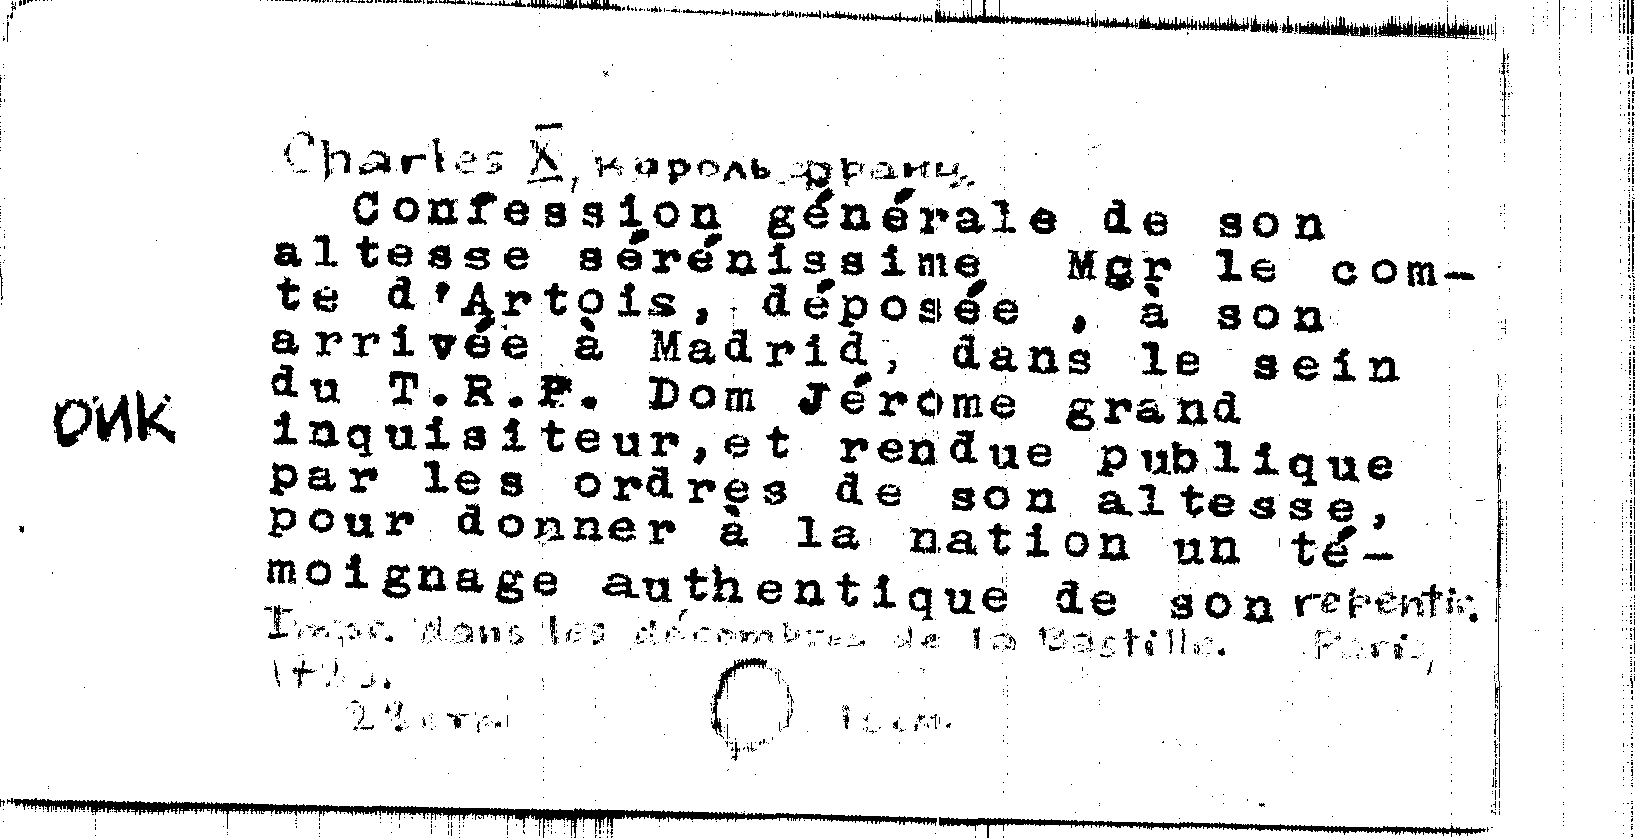 Charles X, король франц.
Confession générale de son
altesse sérénissime Mgr le com-
te d'Artois, déposée , à son
arrivée à Madrid, dans le sein
du T.R.P. Dom Jérome grand
inquisiteur,et rendue publique
par les ordres de son altesse,
pour donner à la nation un té-
moignage authentique de son repentir.
ОИК
Impr. dans les décombres de la Bastille. Paris,
28 стр.